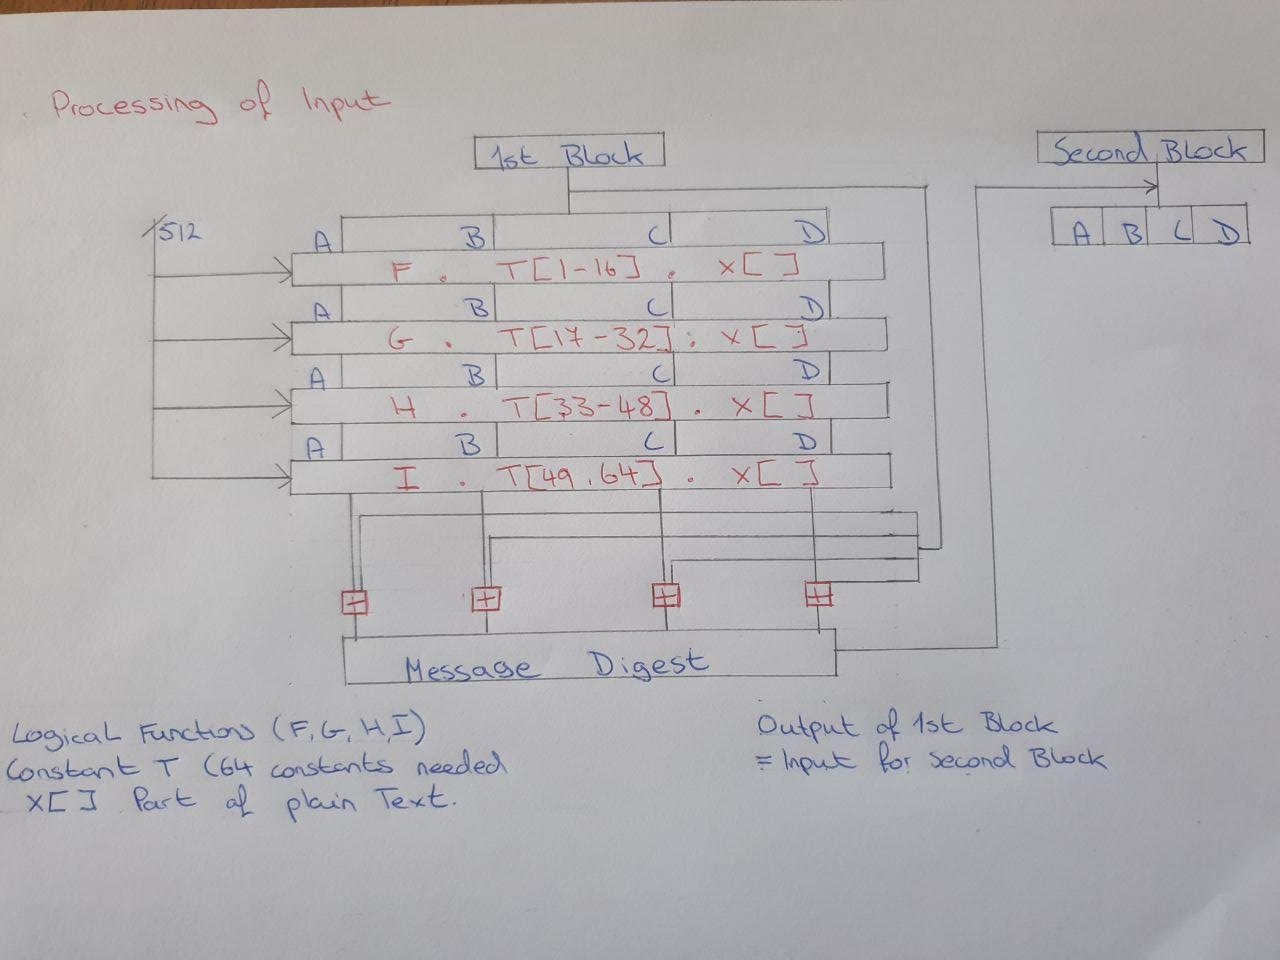 Processing of Input
1st Block
Second Block
512
A B C D
A B C D
F . T[1-16] . X[ ]
A B C D
G . T[17-32] : X[ ]
A B C D
H . T[33-48] . X[ ]
A B C D
I . T[49.64] . X[ ]
+ + + +
Message Digest
Logical Functions (F,G,H,I)
Constant T (64 constants needed
X[ ] Part of plain Text.
Output of 1st Block
= Input for second Block